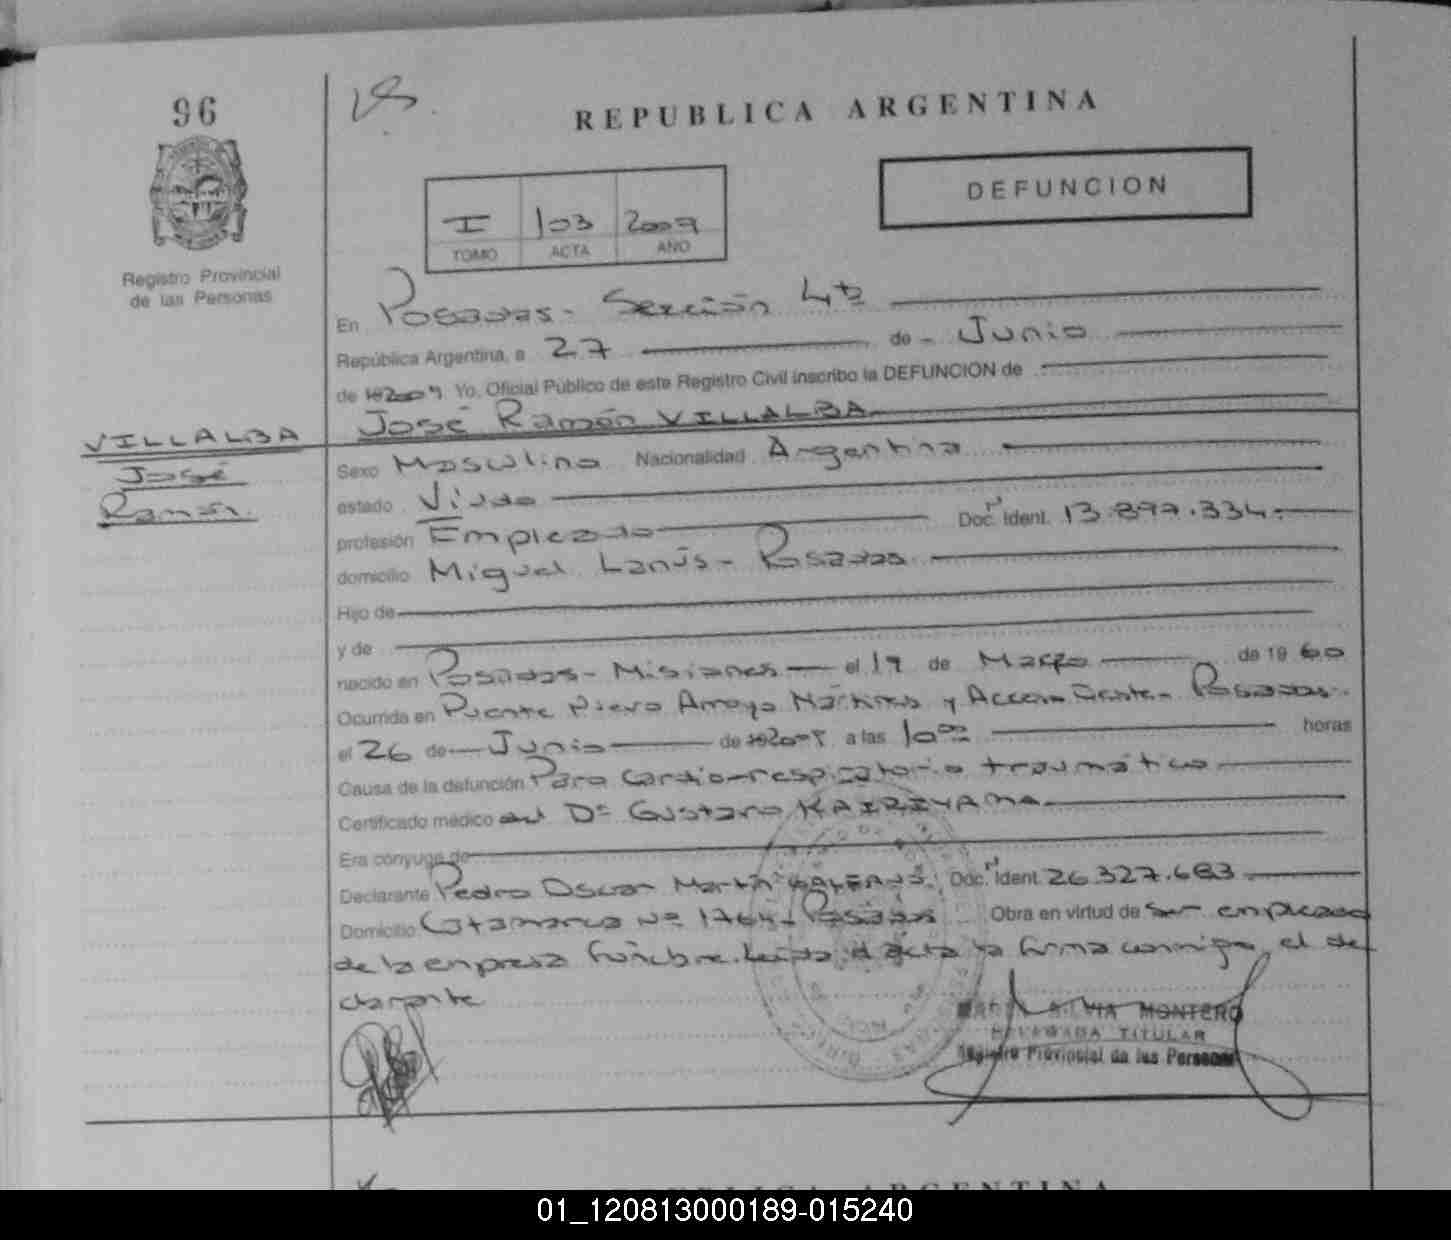 96
REPUBLICA ARGENTINA
DEFUNCION
I 103 2009
TOMO ACTA AÑO
Registro Provincial
de las Personas
En Posadas - Sección 4ta
República Argentina, a 27 de - Junio
de 2009 Yo, Oficial Público de este Registro Civil inscribo la DEFUNCION de
José Ramón VILLALBA
VILLALBA
José
Ramón.
Sexo Masculino Nacionalidad Argentina
estado Viudo
profesión Empleado Doc. Ident. 13.897.334.
domicilio Miguel Lanús - Posadas
Hijo de
y de
nacido en Posadas - Misiones el 19 de Marzo de 1960
Ocurrida en Puente Nuevo Arroyo y Acceso Posadas.
el 26 de Junio de 2009 a las 10 horas
Causa de la defunción Paro cardio-respiratorio traumático
Certificado médico del Dr Gustavo KAIRIYAMA
Era cónyuge de
Declarante Pedro Oscar Martín Doc. Ident. 26.327.683
Domicilio Catamarca Nº 1764 - Posadas Obra en virtud de ser empleado
de la empresa fúnebre. Leída el acta la firma conmigo el de
clarante
SILVIA MONTERO
DELEGADA TITULAR
Registro Provincial de las Personas
REPUBLICA ARGENTINA
01_120813000189-015240